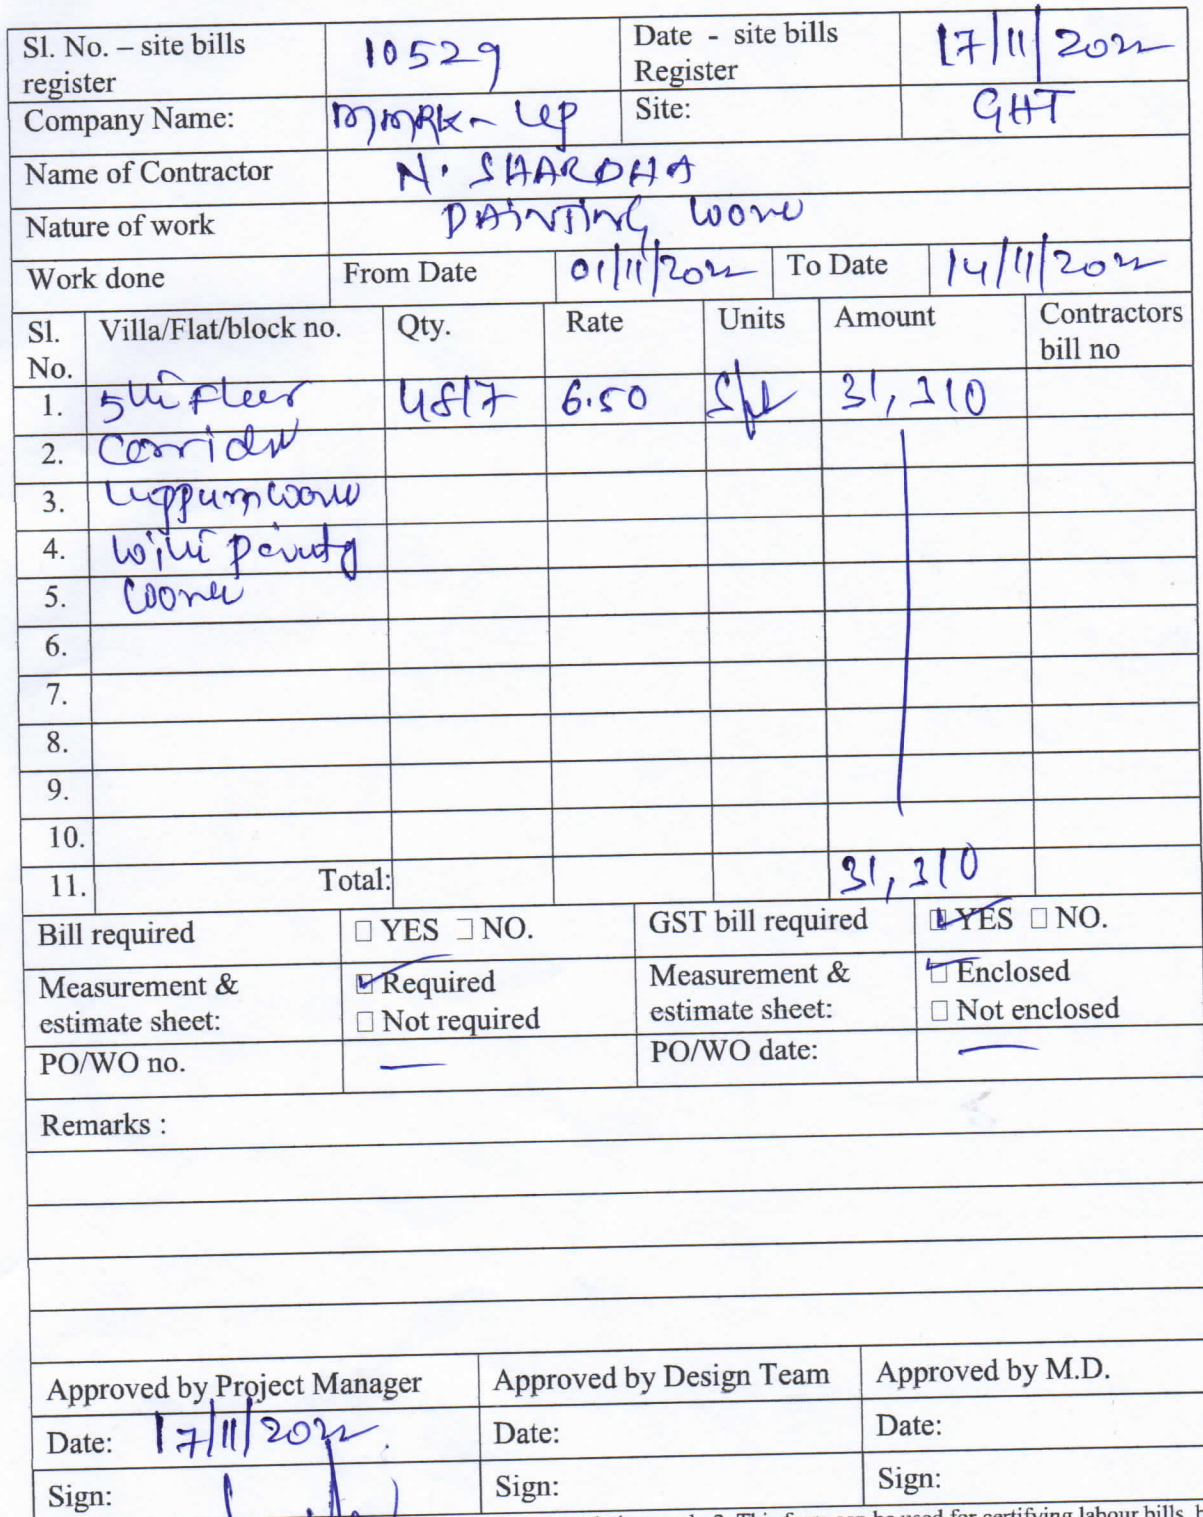 Sl. No. – site bills register 10529 Date - site bills Register 17/11/2022
Company Name: Site: GHT
Name of Contractor N. SHARDHA
Nature of work PAINTING work
Work done From Date 01/11/2022 To Date 14/11/2022
Sl. No. Villa/Flat/block no. Qty. Rate Units Amount Contractors bill no
1. 5th Floor 4817 6.50 Sft 31,310
2. Corridor
3. Luppum work
4. with painting
5. work
6.
7.
8.
9.
10.
11. Total: 31,310
Bill required ☐ YES ☐ NO. GST bill required ☑ YES ☐ NO.
Measurement & estimate sheet: ☑ Required ☐ Not required Measurement & estimate sheet: ☑ Enclosed ☐ Not enclosed
PO/WO no. — PO/WO date: —
Remarks :
Approved by Project Manager Approved by Design Team Approved by M.D.
Date: 17/11/2022. Date: Date:
Sign: Sign: Sign:
2. This form can be used for certifying labour bills,